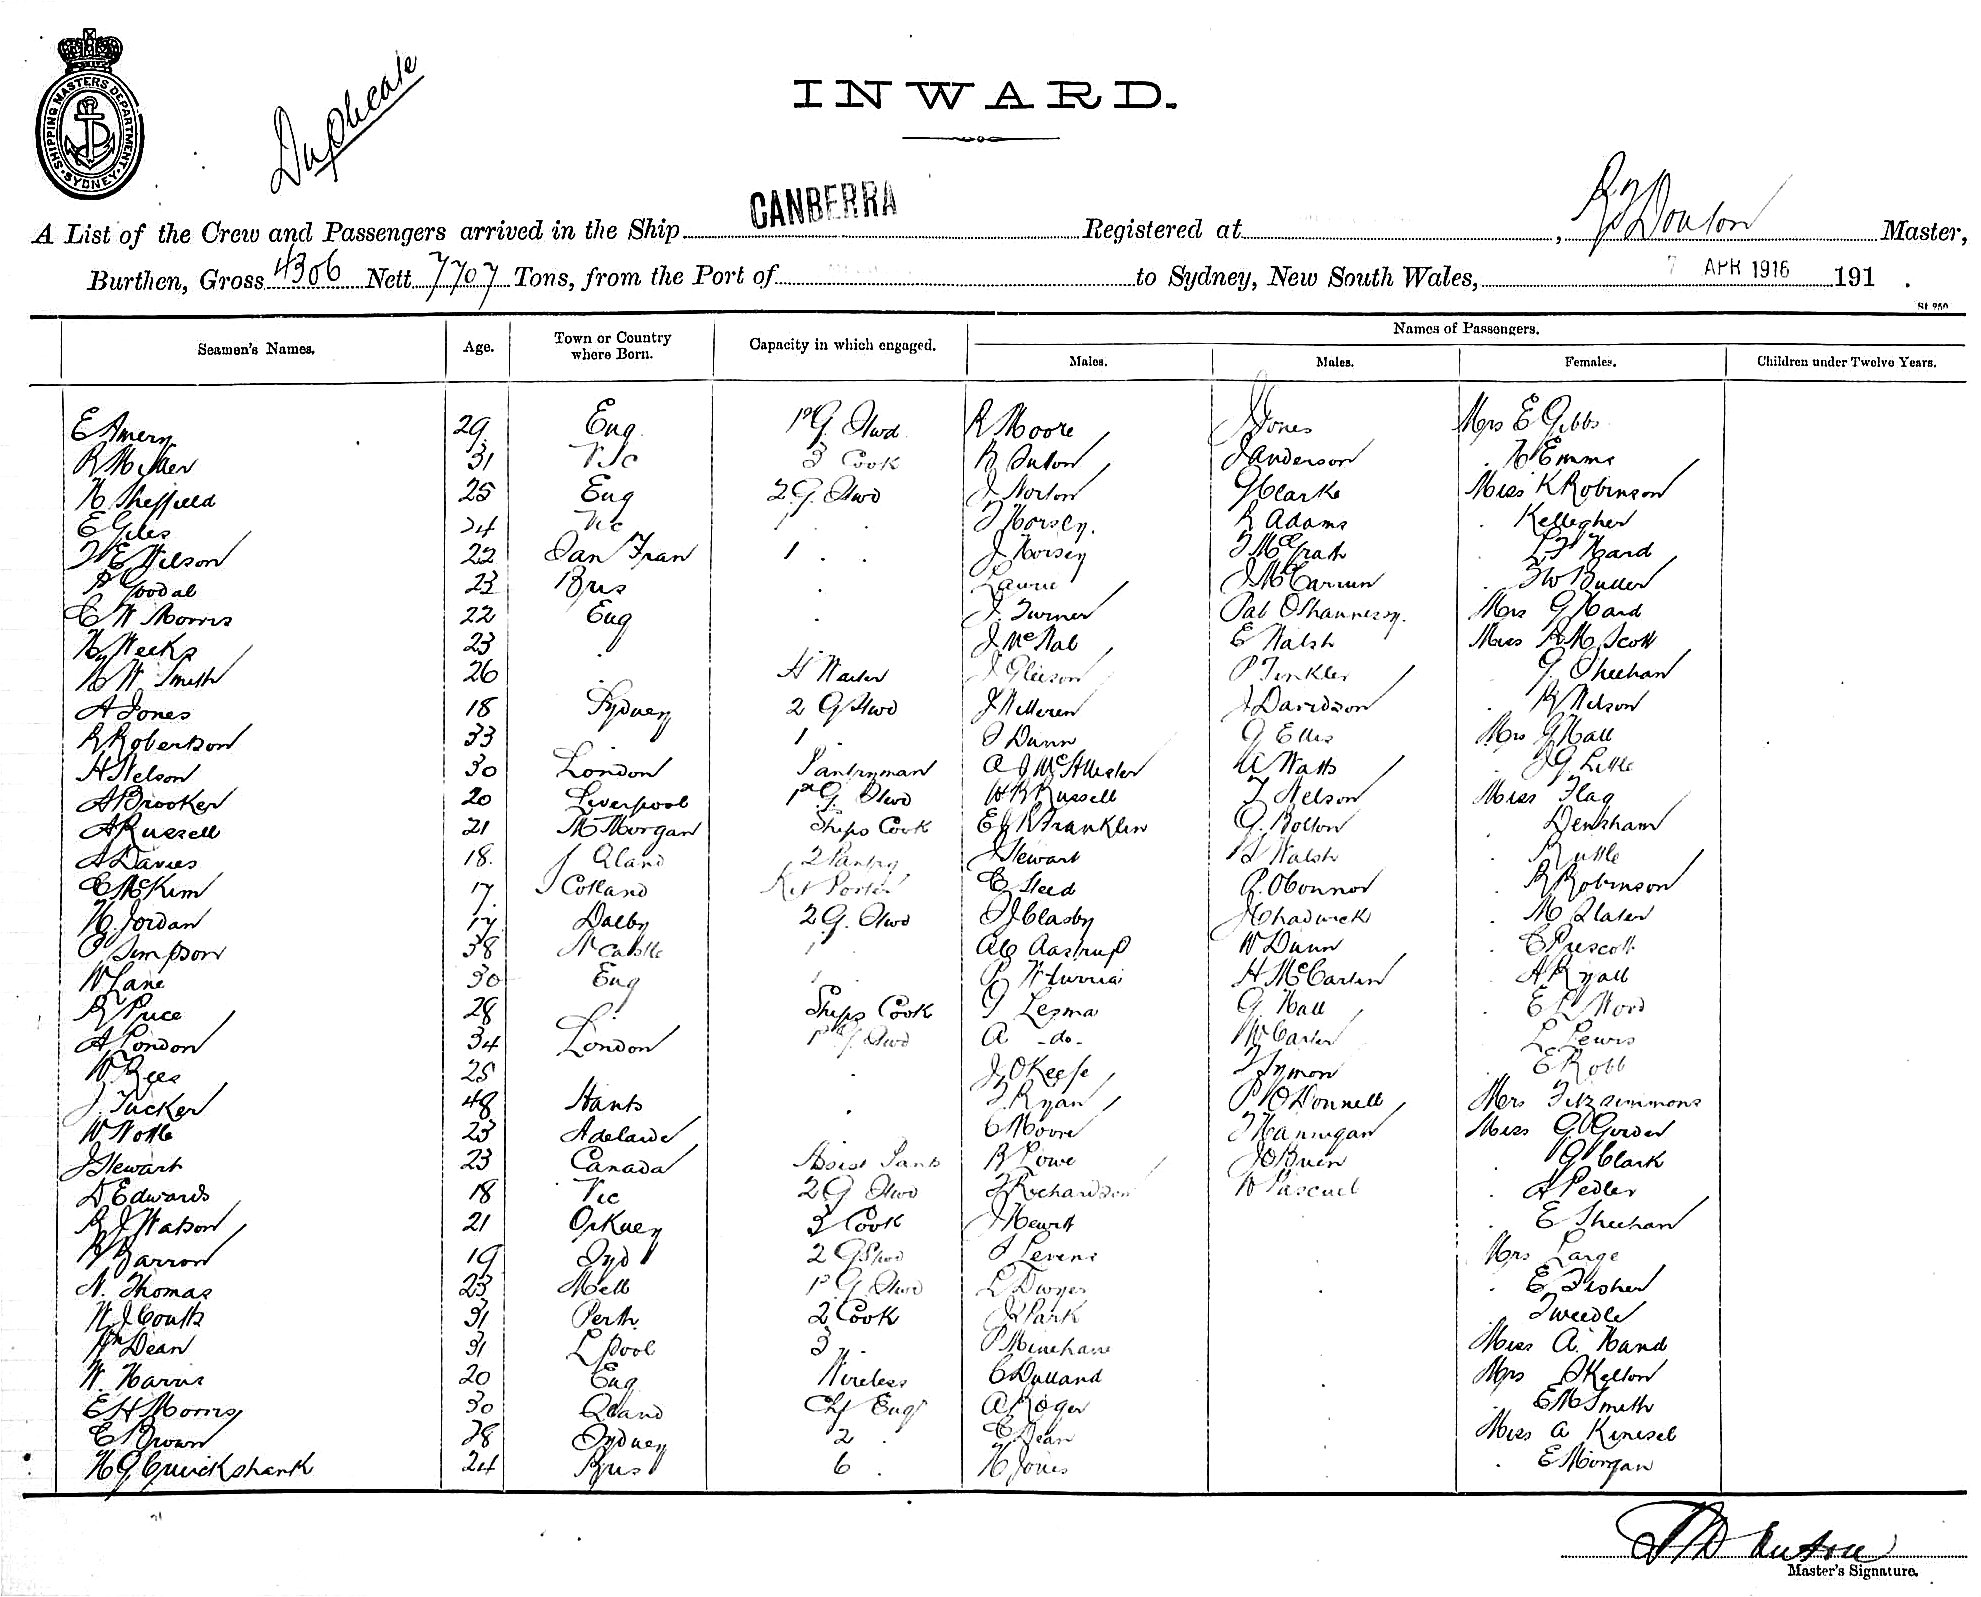 SHIPPING MASTERS DEPARTMENT. SYDNEY.
Duplicate
INWARD.
CANBERRA
A List of the Crew and Passengers arrived in the Ship Registered at , Master,
Burthen, Gross 4306 Nett 7707 Tons, from the Port of to Sydney, New South Wales, 7 APR 1916 191 .
St 250
Seamen's Names. Age. Town or Country where Born. Capacity in which engaged. Names of Passengers.
Males. Males. Females. Children under Twelve Years.
E Amery 29 Eng. 1st G Stwd R Moore J Jones Mrs E Gibbs
R Miller 31 Vic 3 Cook J Anderson . Emms
H Sheffield 25 Eng 2 G. Stwd J Norton G Clarke Miss K Robinson
E Giles 24 Vic T Horsey. R Adams . Kellegher
H E Wilson 22 San Fran 1 . . J Horsey T McGrath . Hard
A Goodal 23 Bris . Laurie . Butler
C W Morris 22 Eng . J. Turner Pat O'Shannessy. Mrs G Hard
Hy Weeks 23 . J McNab E Walsh Miss A M Scott
H W Smith 26 J Gleeson P Tinkler G. Sheehan
A Jones 18 Sydney 2 G Stwd J Davidson . R Nelson
R Robertson 33 1 . Dunn G Ellis Mrs G Hall
H Nelson 30 London Pantryman A J McAllister W Watts . J G Little
A Brooker 20 Liverpool 1st G Stwd W R Russell T Nelson Miss Flag
A Russell 21 M Morgan Ships Cook E J R Franklin G. Bolton . Densham
A Davies 18. Qland 2 Pantry J Stewart Walsh . Ruttle
C McKim 17. Scotland Kit Porter E Steed R. O'Connor . R Robinson
H. Jordan 17 Dalby 2 G. Stwd T J Clasby J Chadwick . M Slater
P Simpson 38 N Castle 1 . A C Aastrup W Dunn . C Prescott
W Lane 30 Eng 1 . H McCarten . A Ryall
R Price 28 . Ships Cook G Lesma G Hall . E L Word
A London 34 London 1st G Stwd A - do - W Carter L Lewis
W Rees 25 . J O'Keefe T Symon E Robb
J. Tucker 48 Hants . T. Ryan P O'Donnell Mrs Fitzsimmons
W Nottle 23 Adelaide C Moore T Hannigan Miss G Gorden
J Stewart 23 Canada Assist Pant R Lowe J O'Brien . G Clark
D Edwards 18 Vic 2 G Stwd T Richardson W Pascoe . A Pedler
R J Watson 21 Orkney 3 Cook J Hewitt . E Sheehan
Barron 19 Syd 2 G Stwd Levens Mrs Large
N. Thomas 23 Melb 1st G Stwd L Dwyer . . E Fisher
W. J Coutts 31 Perth 2 Cook J Park . Tweedle
Wm Dean 31 L Pool 3 . P Minehane Miss A. Hand
W. Harris 20 Eng Wireless Mrs Skelton
E H Morris 30 Qland Chf Engr A Roger . E M Smith
C Brown 28 Sydney 2 . C Dean Miss A
H G Cruickshank 24 Bris 6 . H Jones . . E Morgan
Master's Signature.